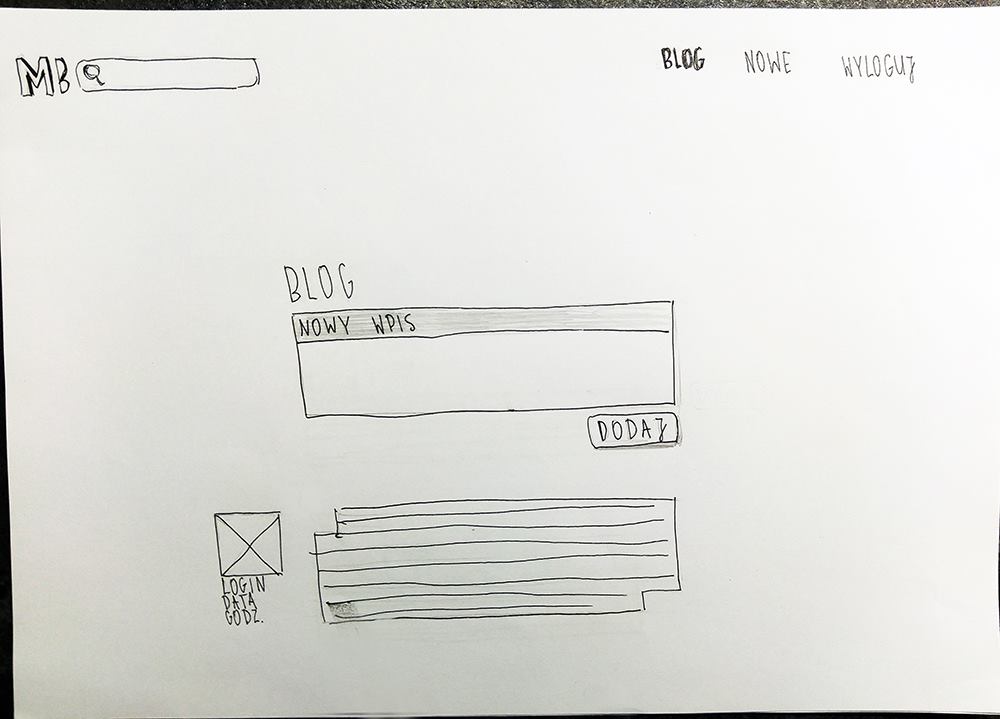 MB
BLOG NOWE WYLOGUJ
BLOG
NOWY WPIS
DODAJ
LOGIN
DATA
GODZ.